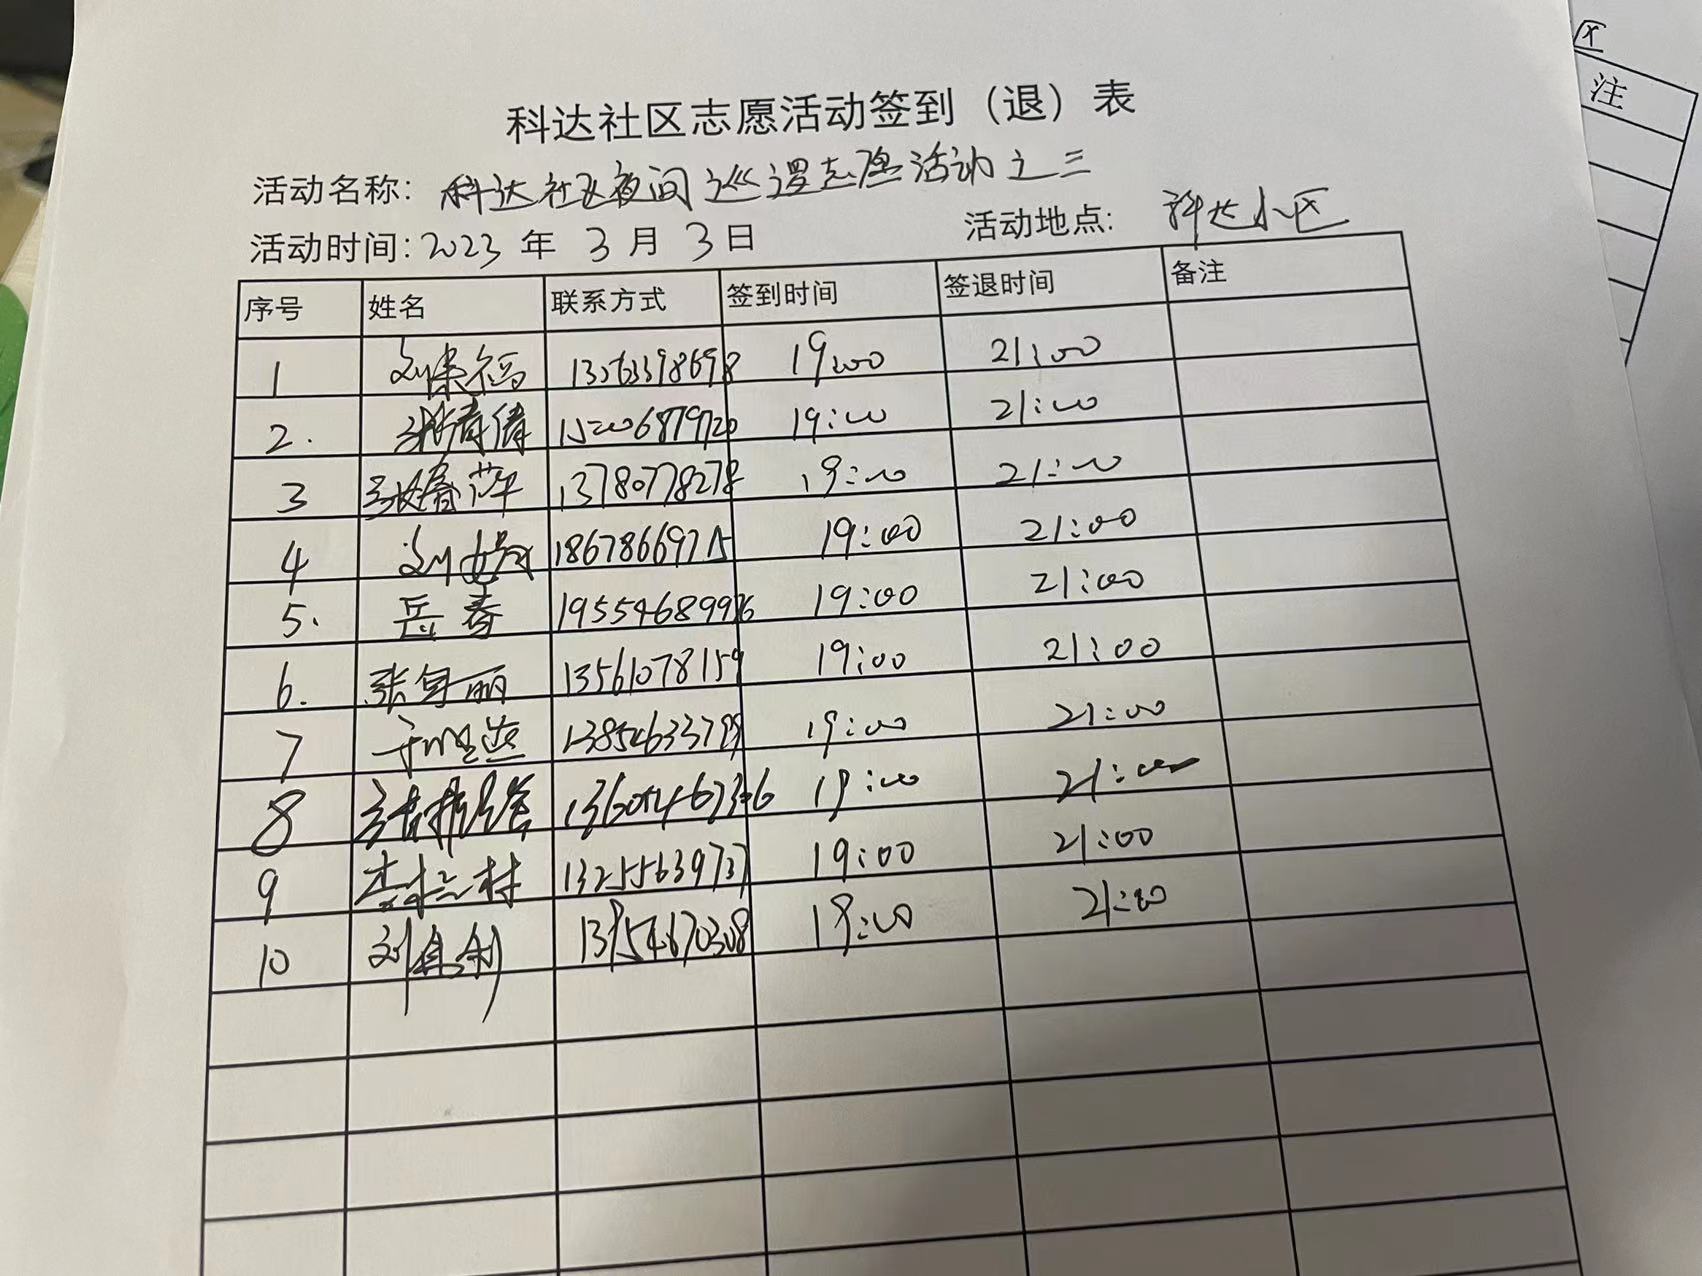 科达社区志愿活动签到（退）表
活动名称：科达社区夜间巡逻志愿活动之三
活动时间：2023 年 3 月 3 日 活动地点: 科达小区
序号 姓名 联系方式 签到时间 签退时间 备注
1 13563398698 19:00 21:00
2. 张倩倩 15006879720 19:00 21:00
3 张春萍 13780778278 19:00 21:00
4 18678669715 19:00 21:00
5. 岳春 19:00 21:00
6. 13561078159 19:00 21:00
7 13854633799 19:00 21:00
8 19:00 21:00
9 13255639737 19:00 21:00
10 19:00 21:00
区
注